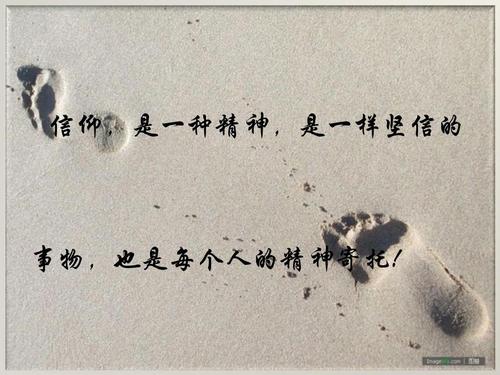 信仰，是一种精神，是一样坚信的
事物，也是每个人的精神寄托！